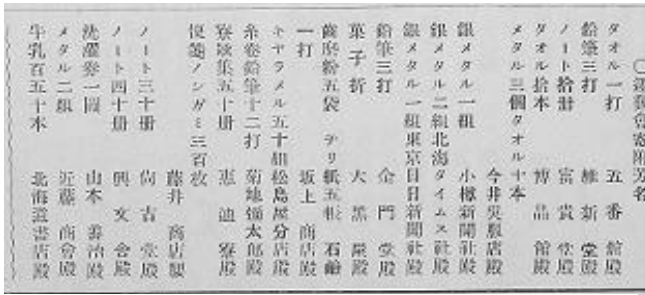 〇運動會寄附芳名
タオル一打 五番館殿
鉛筆三打 維新堂殿
ノート拾册 富貴堂殿
タオル拾本 博品館殿
メタル三個タオル十本
今井呉服店殿
銀メタル一組 小樽新聞社殿
銀メタル二組北海タイムス社殿
銀メタル一組東京日日新聞社殿
鉛筆三打 金門堂殿
菓子折 大黒屋殿
齒磨粉五袋 チリ紙五帳 石鹼
一打 坂上商店殿
キヤラメル五十組松島屋分店殿
糸卷鉛筆十二打 菊地彌太郎殿
寮歌集五十册 惠迪寮殿
便箋ノシガミ三百枚
藤井商店製
ノート三十册 尙古堂殿
ノート四十册 興文舍殿
洗濯券一圓 山本善治殿
メタル二組 近藤商會殿
牛乳百五十本 北海道書店殿